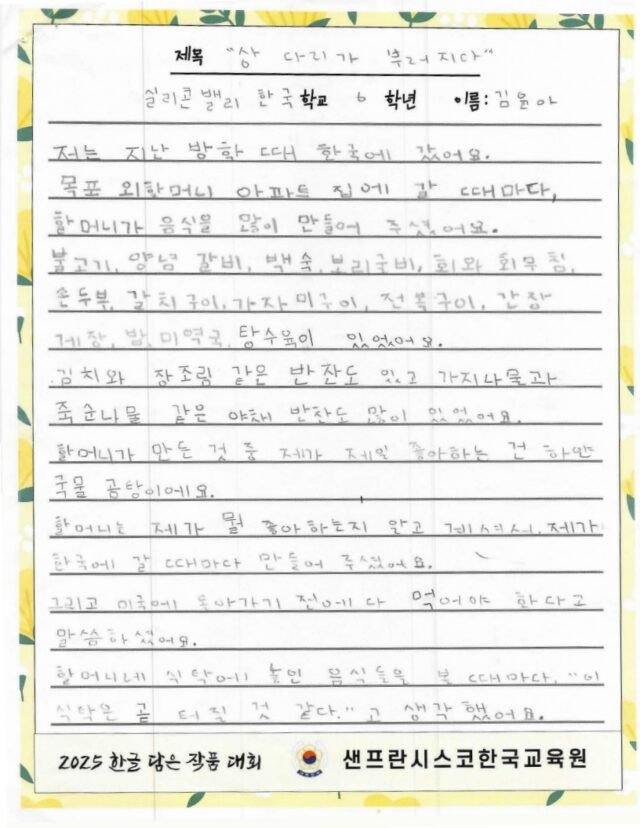 제목 "상 다리가 부러지다"
실리콘 밸리 한국학교 6 학년 이름: 김윤아
저는 지난 방학 때 한국에 갔어요.
목포 외할머니 아파트 집에 갈 때마다,
할머니가 음식을 많이 만들어 주셨어요.
불고기, 양념 갈비, 백숙, 보리굴비, 회와 회무침,
손두부, 갈치구이, 가자미구이, 전복구이, 간장
게장, 밥, 미역국, 탕수육이 있었어요.
김치와 장조림 같은 반찬도 있고 가지나물과
죽순나물 같은 야채 반찬도 많이 있었어요.
할머니가 만든 것 중 제가 제일 좋아하는 건 하얀
국물 곰탕이에요.
할머니는 제가 뭘 좋아하는지 알고 계셔서, 제가
한국에 갈 때마다 만들어 주셨어요.
그리고 미국에 돌아가기 전에 다 먹어야 한다고
말씀하셨어요.
할머니네 식탁에 놓인 음식들을 볼 때마다, "이
식탁은 곧 터질 것 같다." 고 생각했어요.
2025 한글 담은 작품 대회 샌프란시스코한국교육원